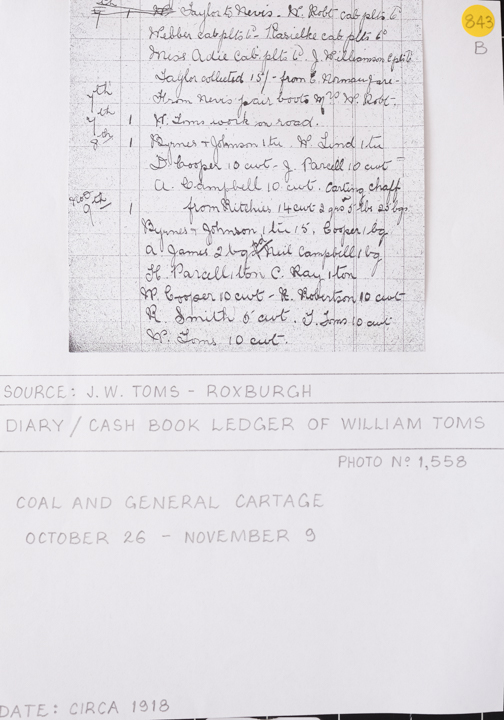 1 Taylor to Nevis. W. Robt cab plts 6
Webber cab plts 6 cab plts 6
Miss Adie cab plts 6. J. Williamson
Taylor collected 15/- from E. Norman fare.
From Nevis pair boots Mrs W. Robt.
7th 1 W. Toms work on road.
8th 1 Byrnes + Johnson 1 tn W. Lind 1 tn
D. Cooper 10 cwt - J. Parcell 10 cwt
A. Campbell 10 cwt. Carting chaff
Nov 9th 1 from Ritchies 14 cwt 2 qrs 5 lbs 25 bgs
Byrnes + Johnson 1 tn 15, Cooper 1 bg
A. James 2 bg Neil Campbell 1 bg
H. Parcell 1 ton C. Ray 1 ton
W. Cooper 10 cwt - R. Robertson 10 cwt
R. Smith 5 cwt. T. Toms 10 cwt
W. Toms 10 cwt.
843
B
SOURCE: J.W. TOMS - ROXBURGH
DIARY / CASH BOOK LEDGER OF WILLIAM TOMS
PHOTO Nº 1,558
COAL AND GENERAL CARTAGE
OCTOBER 26 - NOVEMBER 9
DATE: CIRCA 1918